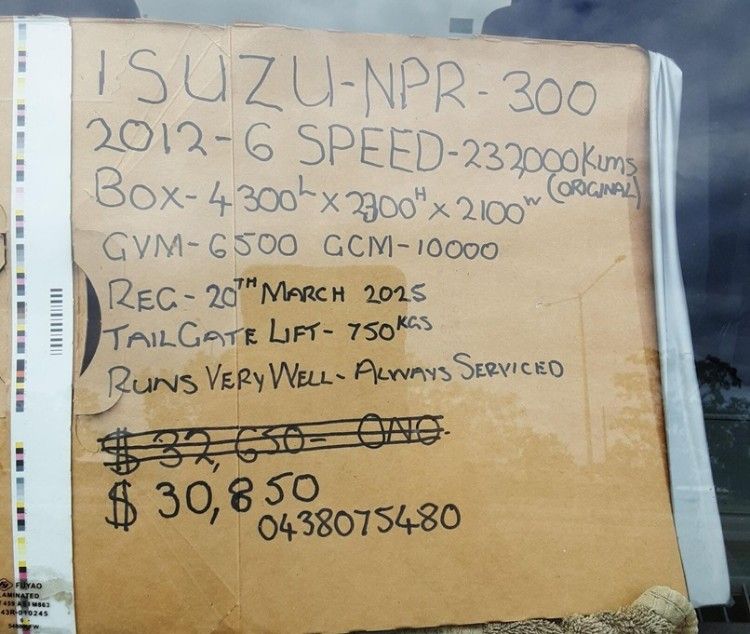 ISUZU-NPR-300
2012-6 SPEED-232,000 Kums
(ORIGINAL)
BOX-4300L x 2300H x 2100W
GVM-6500 GCM-10000
REG-20TH MARCH 2025
TAILGATE LIFT-750KGS
RUNS VERY WELL-ALWAYS SERVICED
$32,650- ONO-
$30,850
0438075480
FUYAO
LAMINATED
43R-010245